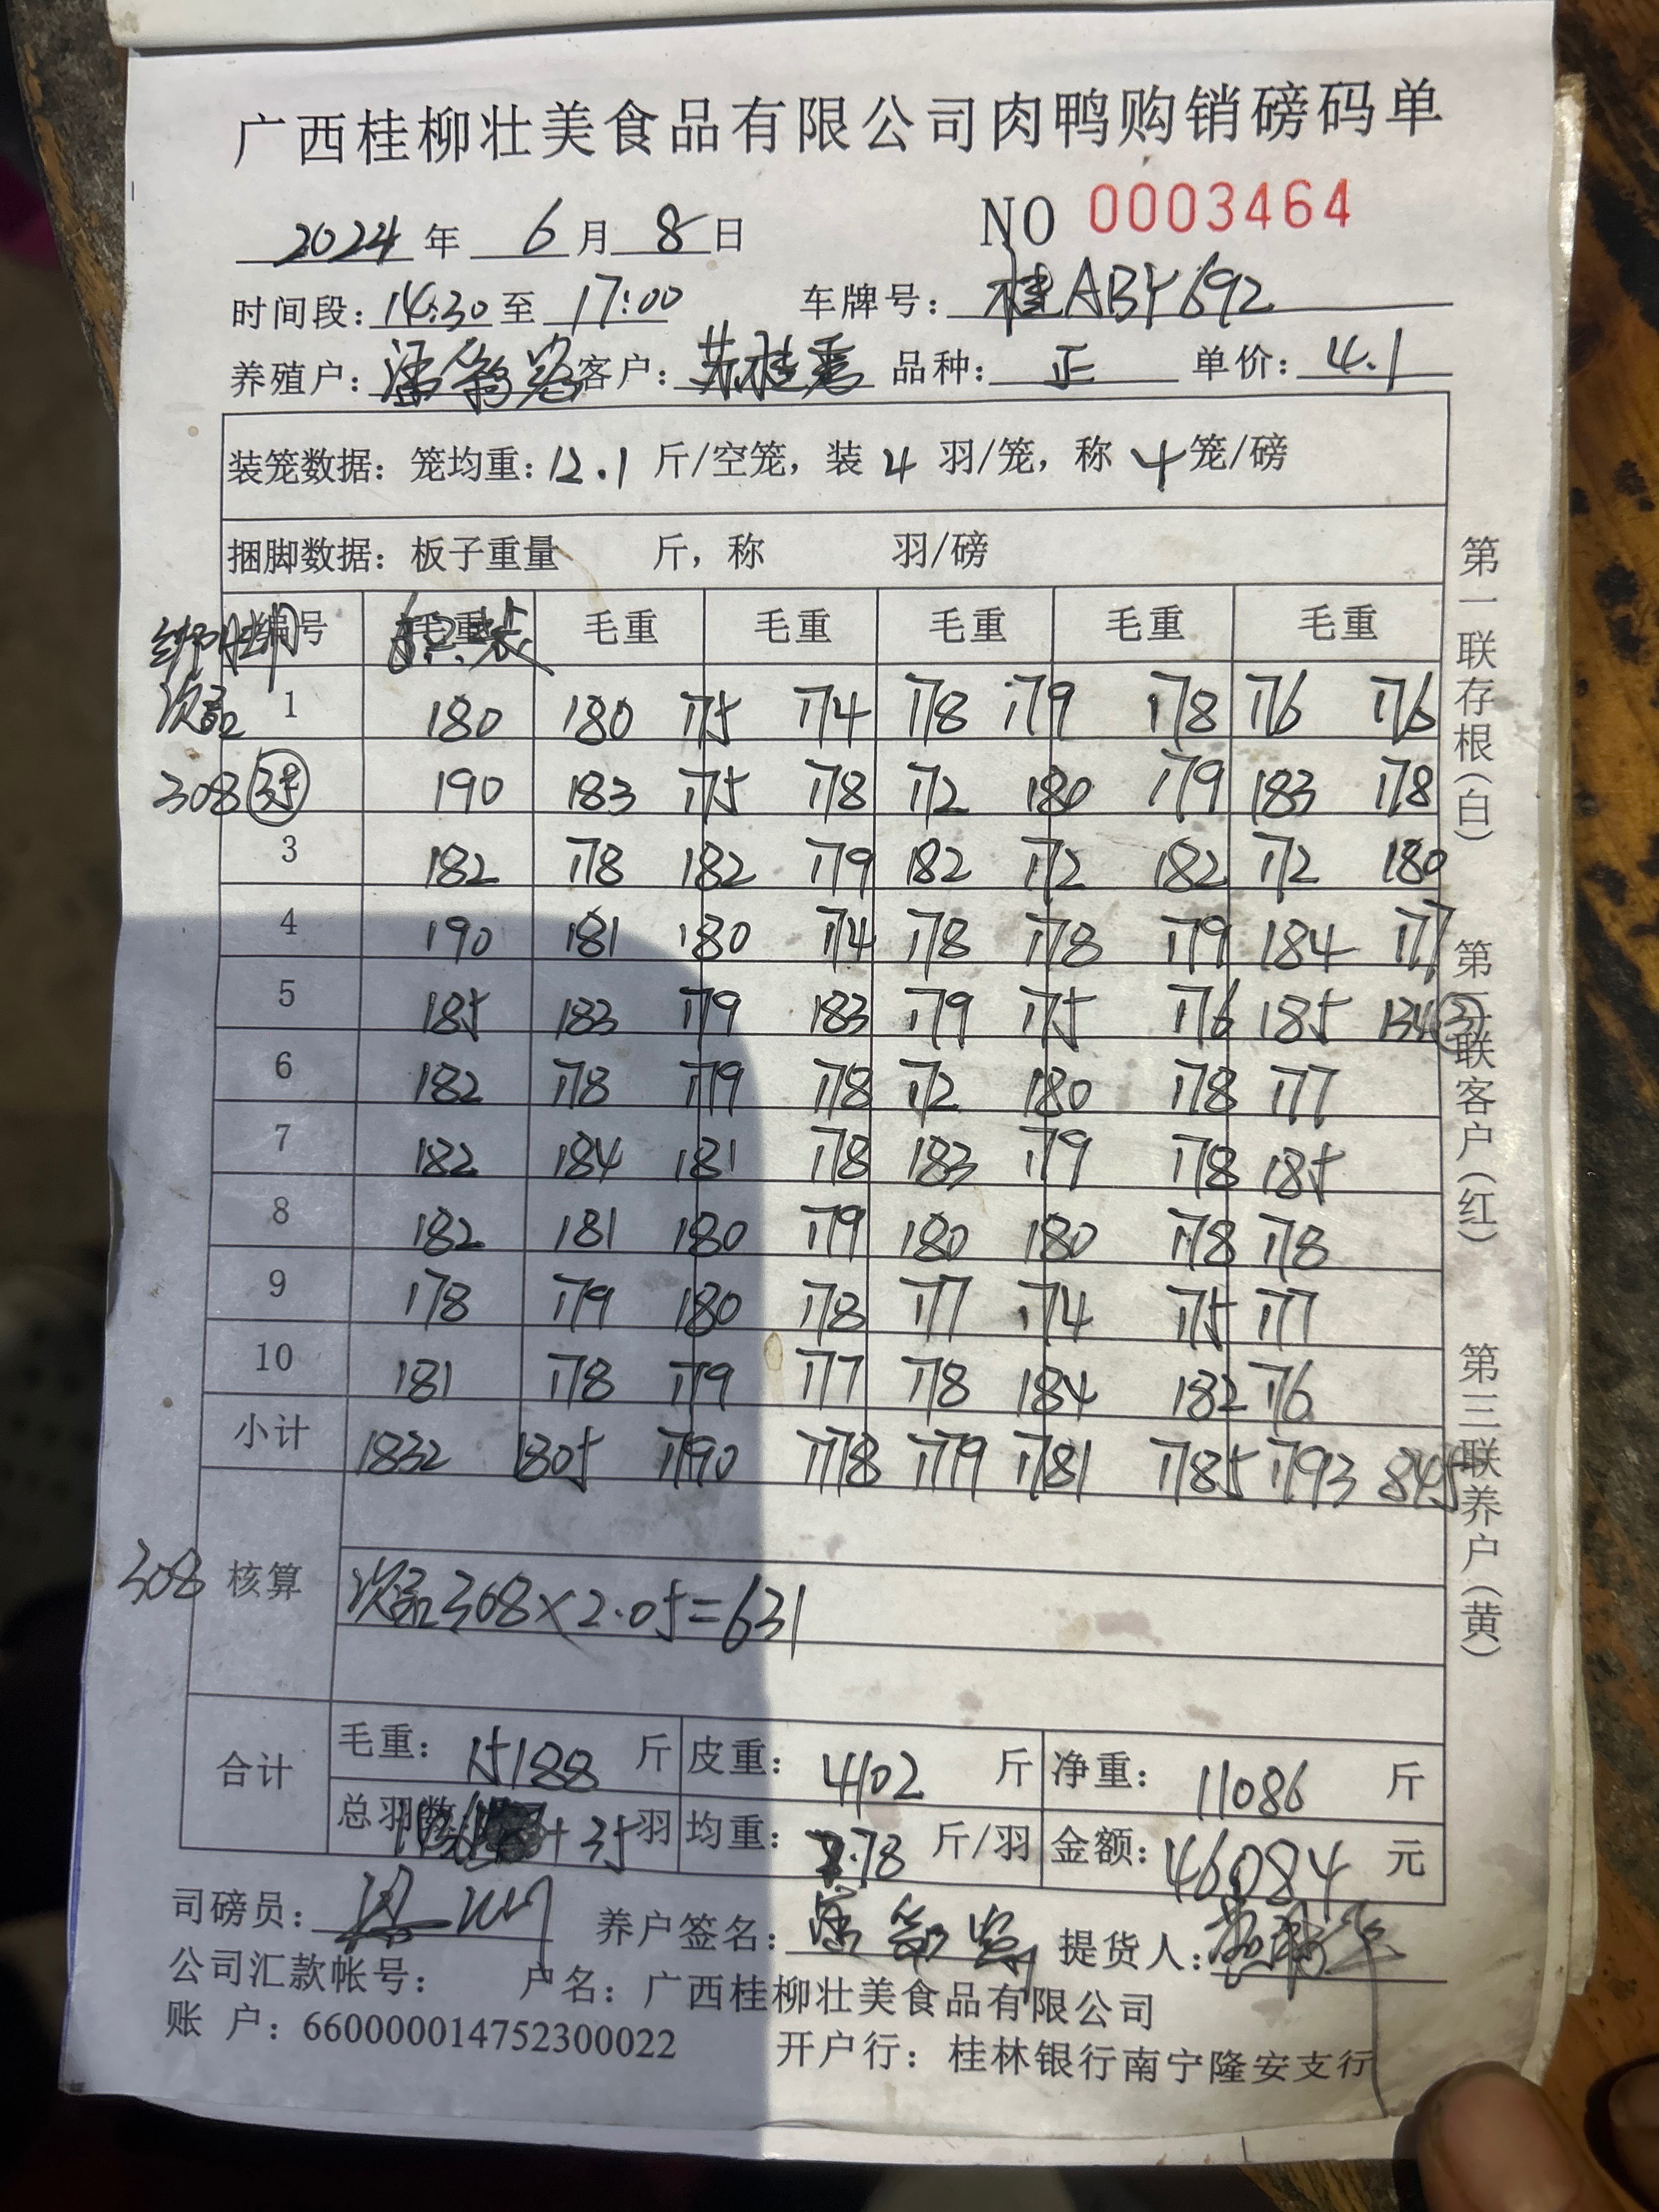 广西桂柳壮美食品有限公司肉鸭购销磅码单
2024年 6月 8日 NO 0003464
时间段：14:30 至 17:00 车牌号：桂ABY692
养殖户： 客户：苏桂 品种：正 单价：4.1
装笼数据：笼均重：12.1 斤/空笼，装 4 羽/笼，称 4 笼/磅
捆脚数据：板子重量 斤，称 羽/磅
编号 毛重 毛重 毛重 毛重 毛重 毛重
次品 1 180 180 175 174 178 179 178 176 176
308 35 190 183 175 178 172 180 179 183 178
3 182 178 182 179 182 172 182 172 180
4 190 181 180 174 178 178 179 184 177
5 185 183 179 183 179 175 176 185 134 ③
6 182 178 179 178 172 180 178 177
7 182 184 181 178 183 179 178 185
8 182 181 180 179 180 180 178 178
9 178 179 180 178 177 174 175 177
10 181 178 179 177 178 184 182 176
小计 1832 1805 1790 1778 1779 1781 1785 1793 845
308 核算
次品308×2.05=631
合计 毛重：15188 斤 皮重：4102 斤 净重：11086 斤
总羽数 +35羽 均重：7.78 斤/羽 金额：46084 元
司磅员： 养户签名： 提货人：
公司汇款帐号： 户名：广西桂柳壮美食品有限公司
账 户：660000014752300022 开户行：桂林银行南宁隆安支行
第一联存根(白)
第二联客户(红)
第三联养户(黄)